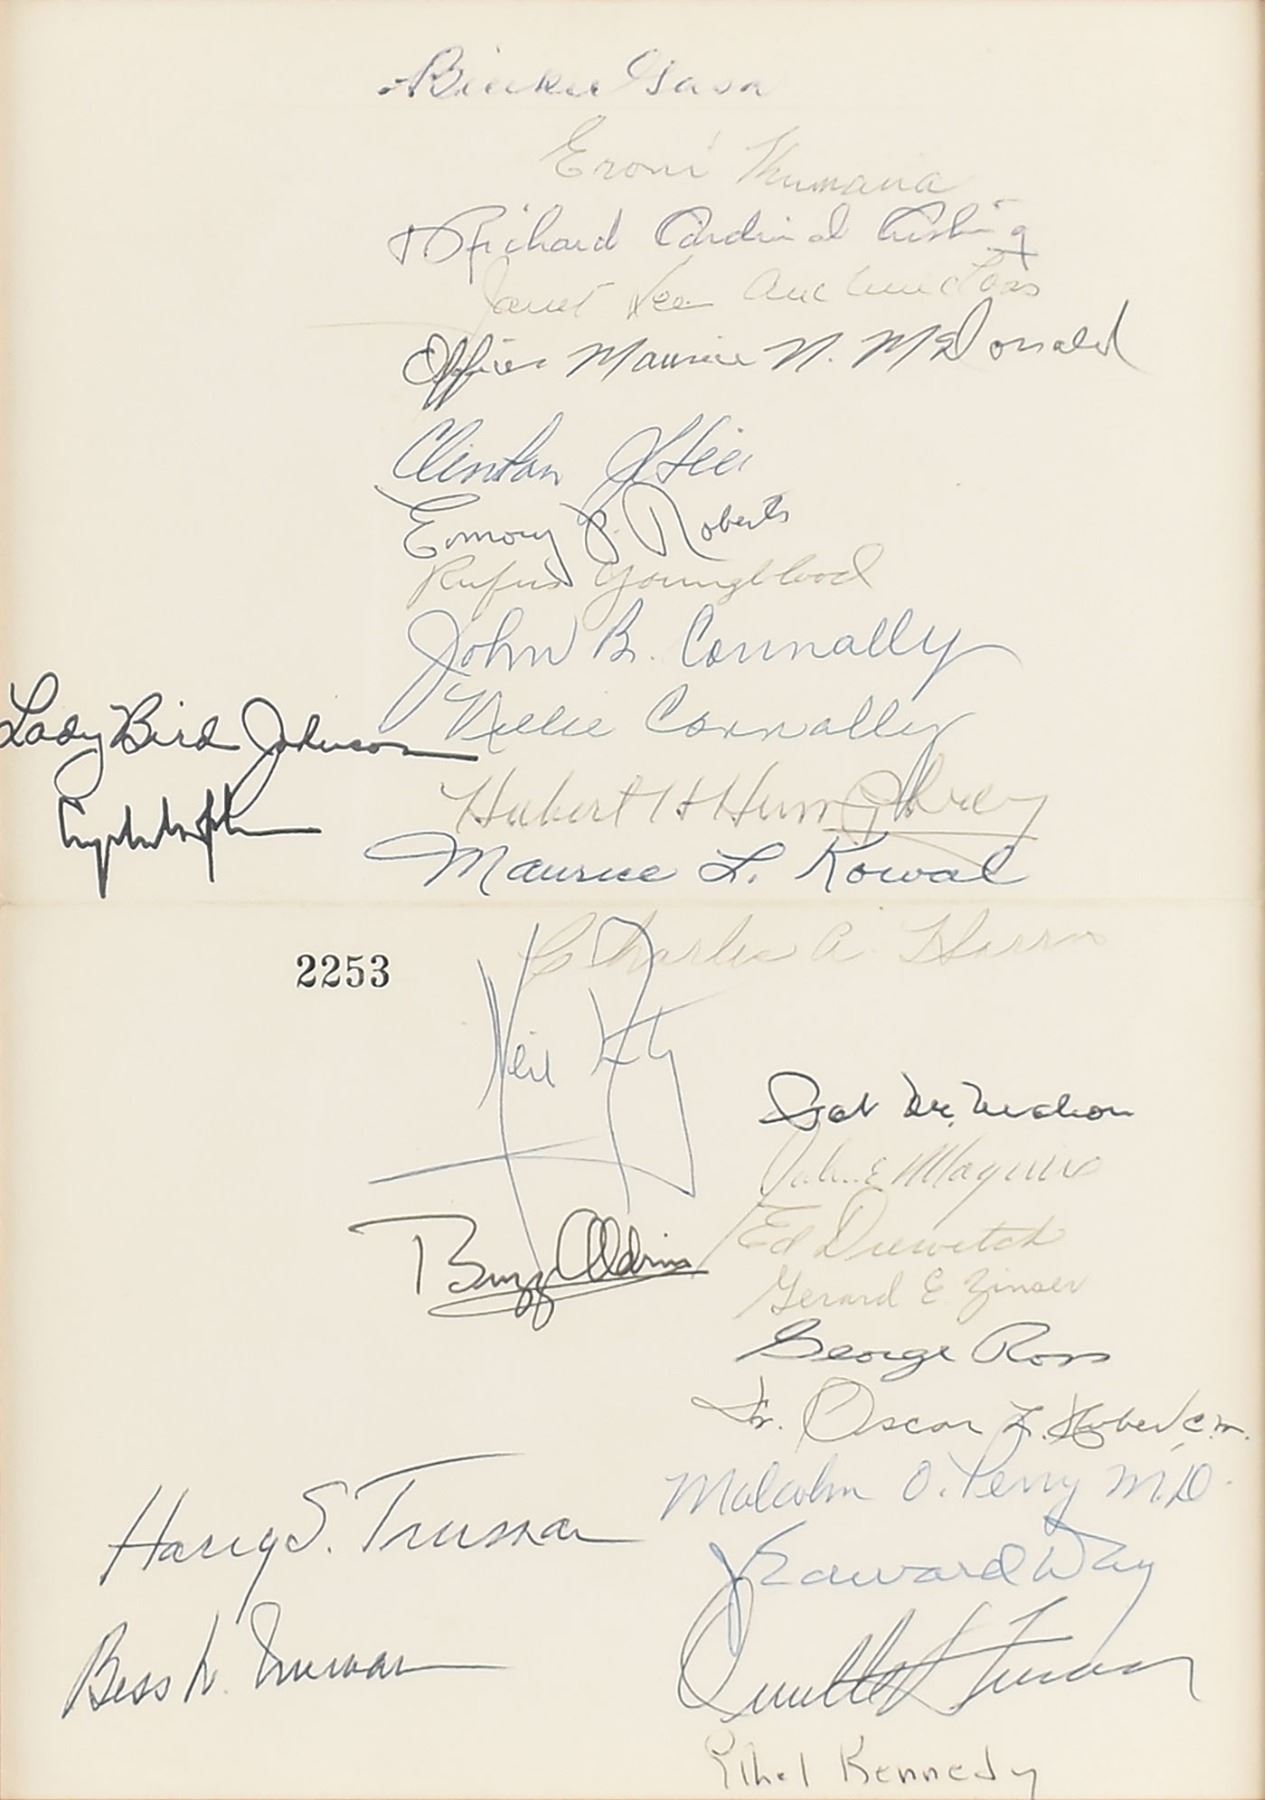 Biuku Gasa
Eroni Kumana
+ Richard Cardinal Cushing
Janet Lee Auchincloss
Officer Maurice N. McDonald
Clinton J Hill
Emory P. Roberts
Rufus Youngblood
John B. Connally
Nellie Connally
Lady Bird Johnson
Hubert H Humphrey
Maurice L. Kowal
Charles A. Harris
2253
Neil
Pat McMahon
John E Maguire
Ed Drewitch
Gerard E Zinser
Buzz Aldrin
George Ross
Fr. Oscar L. Huber, C.M.
Malcolm O. Perry M.D.
Harry S. Truman
Edward Day
Bess W. Truman
Orville L Freeman
Ethel Kennedy